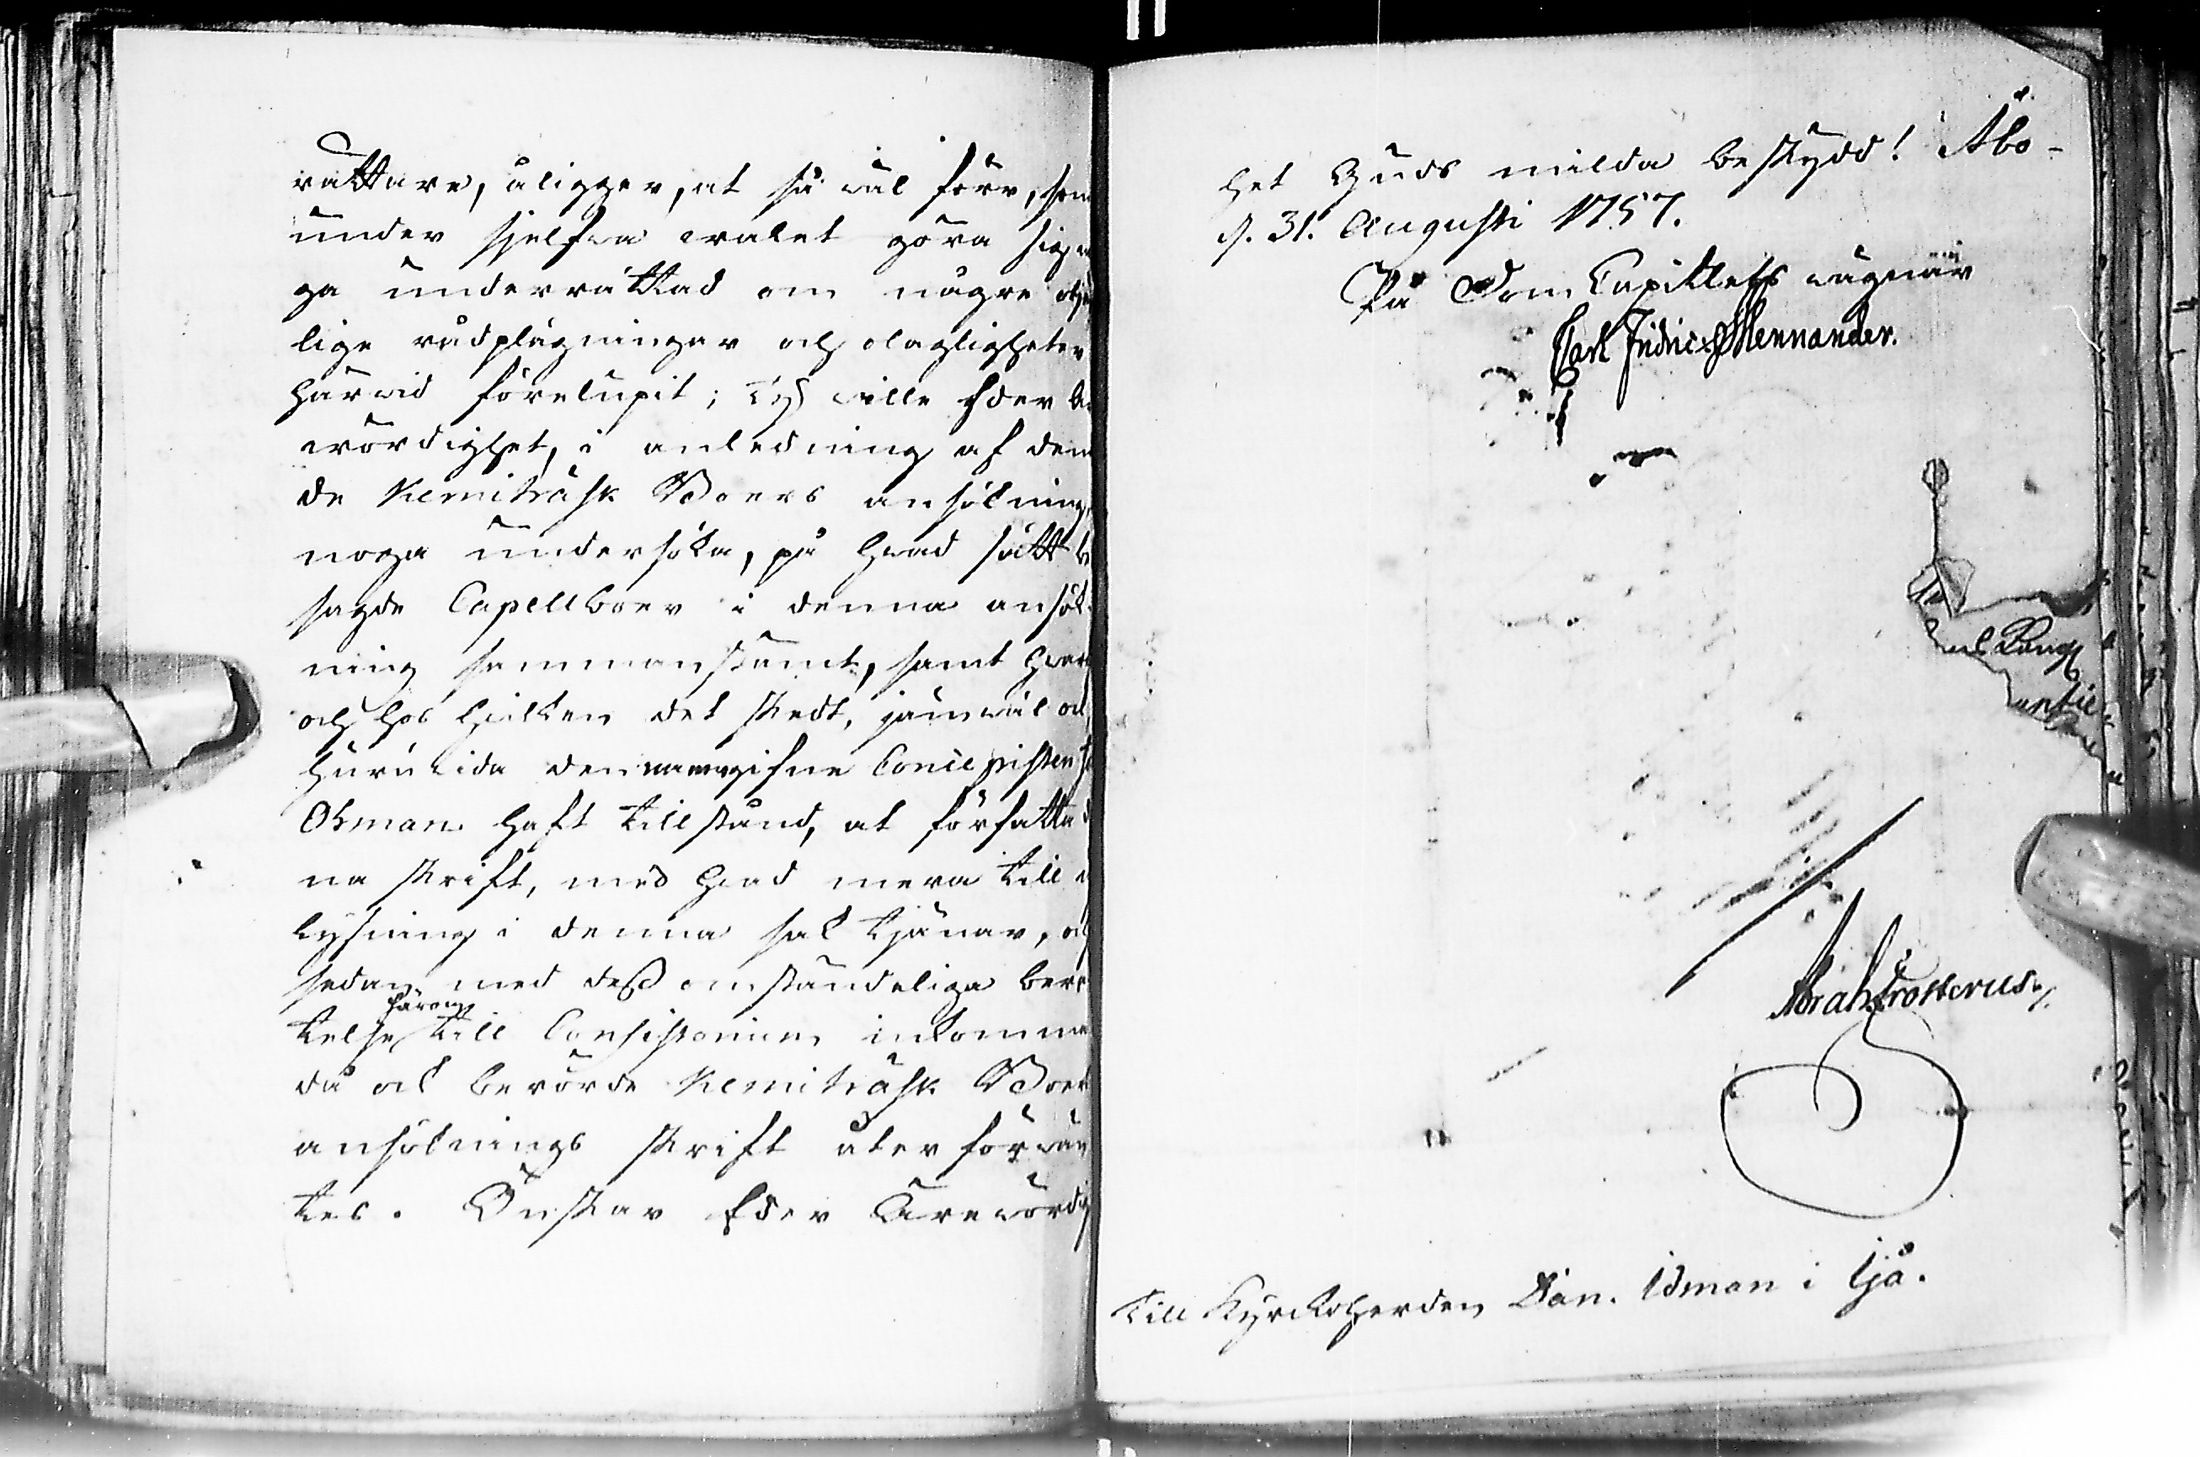 rättare, åligger, at så wäl förr, som
under sjelfwa walet göra sig
ga underrättad om några
lige rådplägningar och olagligheter
härwid förelupit; Ty wille Eder
wördighet, i anledning af den
de Kemiträsk Boers ansökning,
noga undersöka, på hwad sätt be
sagde Capellboer i denna ansök-
ning sammanstämt, samt hwar
och hos hwilken det skedt, jämwäl och
huruwida den namngifne Concipisten
Ohman haft tillstånd, at författa
na skrift, med hwad mera till
lysning i denna sak tjänar, och
sedan med dess omständeliga berät
telse härom till Consistorium inkomma
då ock berörde Kemiträsk Boer
ansöknings skrift åter förwän
tes. Önskar Eder Ärewördig
het Guds milda beskydd! Åbo
d. 31. Augusti 1757.
På Dom Capitlets wägnar
Carl Fridric Mennander.
Abrah Frosterus.
Till Kyrckoherden Dan. Idman i Ijå.